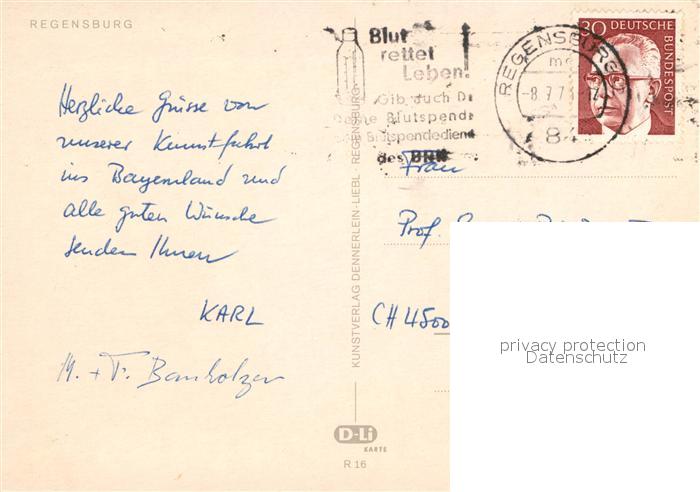 REGENSBURG
Herzliche Grüsse von
unserer Kunstfahrt
ins Bayernland und
alle guten Wünsche
senden Ihnen
KARL
M. + F. Banholzer
KUNSTVERLAG DENNERLEIN-LIEBL - REGENSBURG
D-Li
KARTE
R 16
Blut
rettet
Leben.
Gib auch D
ne Blutspende
Blutspendedien
des BRK
REGENSBURG
-8.7.7
84
30 DEUTSCHE
BUNDESPOST
Frau
Prof.
CH 4500
privacy protection
Datenschutz